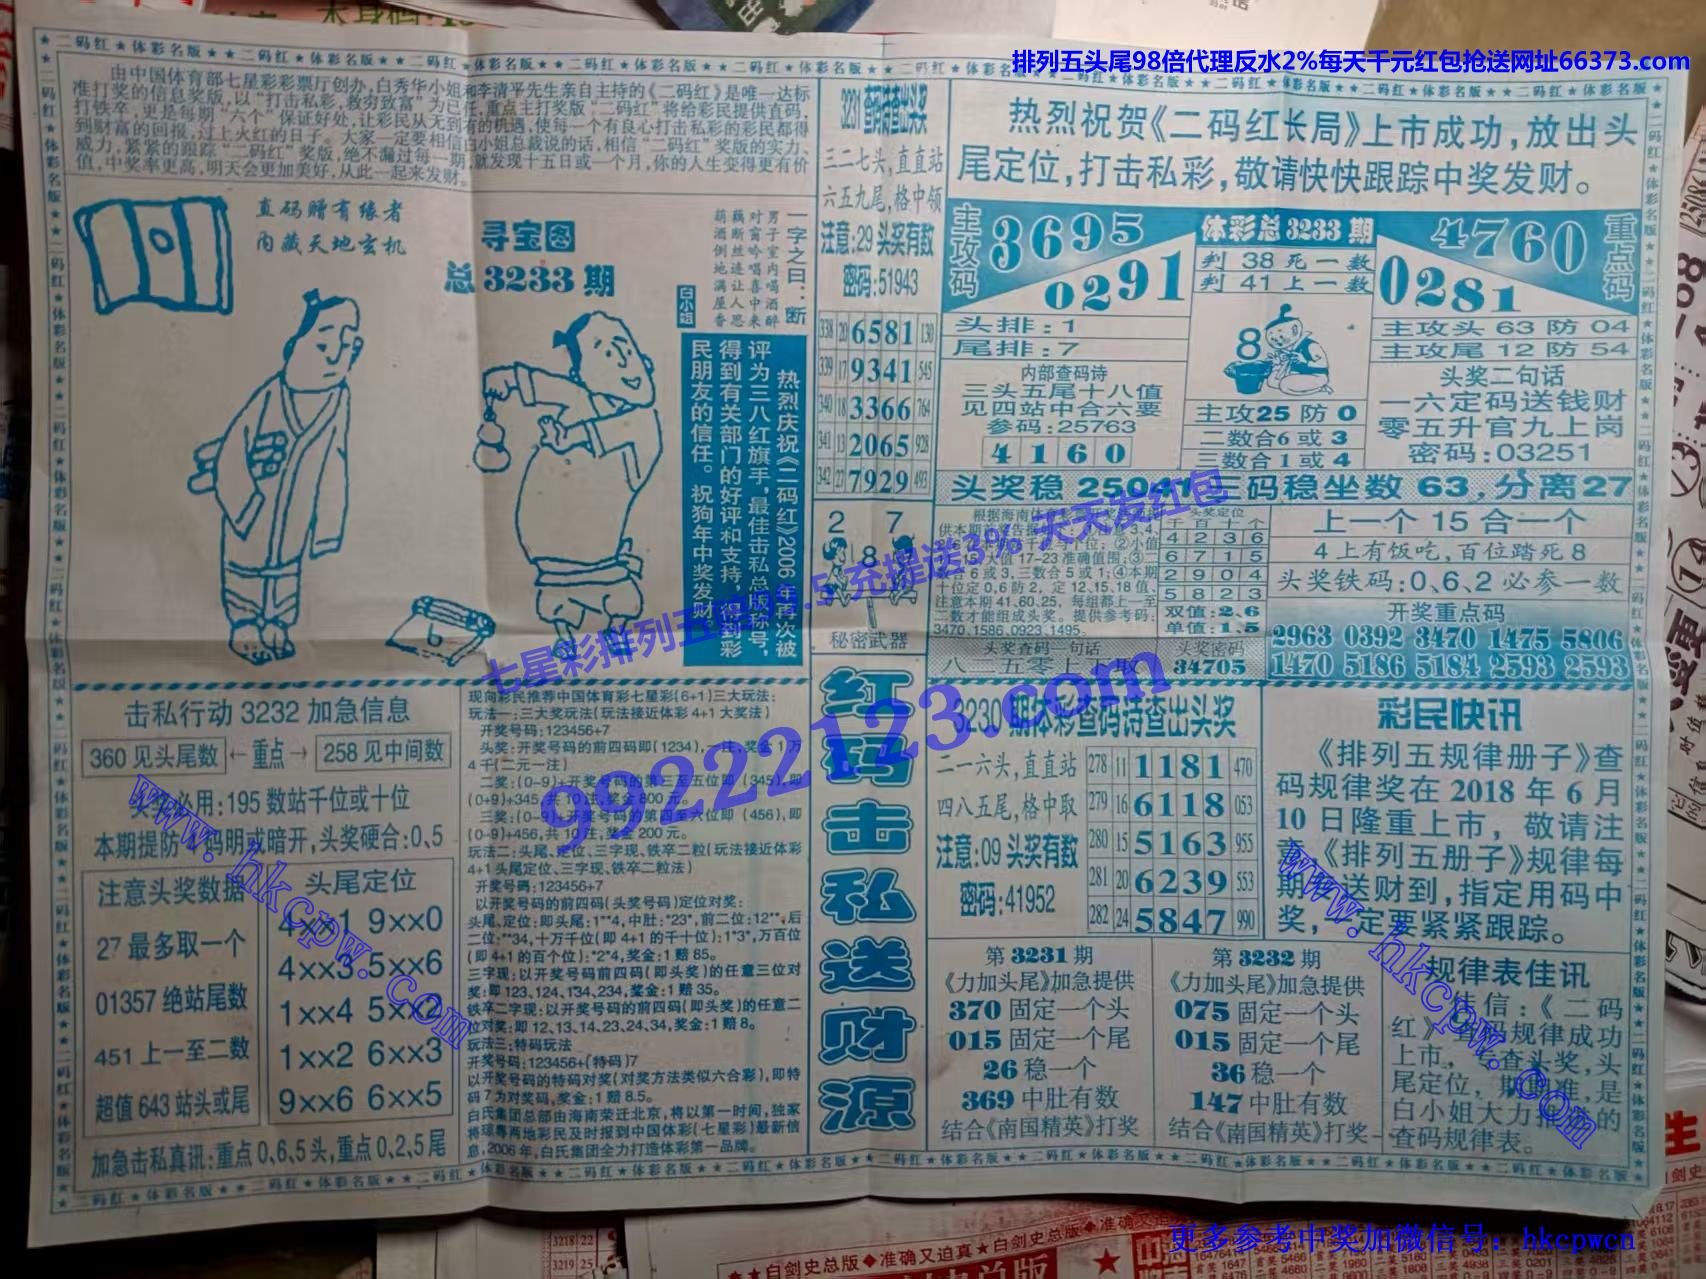 排列五头尾98倍代理反水2%每天千元红包抢送网址66373.com
由中国体育部七星彩彩票厅创办,白秀华小姐和李清平先生亲自主持的《二码红》是唯一达标
准打奖的信息奖版,以“打击私彩,救穷致富”为已任,重点主打奖版“二码红”将给彩民提供直码,
打铁卒,更是每期“六个”保证好处,让彩民从无到有的机遇,使每一个有良心打击私彩的彩民都得
到财富的回报,过上火红的日子。大家一定要相信白小姐总裁说的话,相信“二码红”奖版的实力、
威力,紧紧的跟踪“二码红”奖版,绝不漏过每一期,就发现十五日或一个月,你的人生变得更有价
值,中奖率更高,明天会更加美好,从此一起来发财。
直码赠有缘者
内藏天地玄机
寻宝图
总3233期
白小姐
一字之曰:断
男子室内喝酒醉
对窗吟唱喜中来
藕断丝连让人思
葫酒倒地满屋香
热烈庆祝《二码红》2006年再次被
评为三八红旗手,最佳击私总版称号,
得到有关部门的好评和支持,得到彩
民朋友的信任。祝狗年中奖发财。
3231查码诗查出头奖
三二七头,直直站
六五九尾,格中领
注意:29头奖有数
密码:51943
338 20 6581 130
339 17 9341 545
340 18 3366 764
341 13 2065 928
342 27 7929 493
2 7
8
秘密武器
热烈祝贺《二码红长局》上市成功,放出头
尾定位,打击私彩,敬请快快跟踪中奖发财。
主攻码
3695
0291
体彩总3233期
判 38 死一数
判 41 上一数
4760
0281
重点码
头排:1
尾排:7
内部查码诗
三头五尾十八值
见四站中合六要
参码:25763
4 1 6 0
8
主攻25防0
二数合6或3
三数合1或4
主攻头 63 防 04
主攻尾 12 防 54
头奖二句话
一六定码送钱财
零五升官九上岗
密码:03251
二码稳坐数63,分离27
头奖定位
千百十个
4 2 3 6
6 7 1 5
2 9 0 4
5 8 2 3
双值:2、6
单值:1、5
十位定0、6防2, 定12、15、18值、
注意本期41、60、25, 每组都上一至
二数才能组成头奖。提供参考码:
3470、1586、0923、1495。
头奖查码一句话
头奖密码
34705
上一个 15 合一个
4上有饭吃,百位踏死8
头奖铁码:0、6、2必参一数
开奖重点码
2963 0392 3470 1475 5806
1470 5186 5184 2593 2593
击私行动 3232 加急信息
360见头尾数 ←重点→ 258见中间数
头奖必用:195数站千位或十位
头奖硬合:0、5
注意头奖数据
27最多取一个
01357绝站尾数
451上一至二数
超值643站头或尾
头尾定位
4xx1 9xx0
4xx3 5xx6
1xx4 5xx2
1xx2 6xx3
9xx6 6xx5
加急击私真讯:重点0、6、5头,重点0、2、5尾
现向彩民推荐中国体育彩七星彩(6+1)三大玩法:
玩法一:三大奖玩法(玩法接近体彩4+1大奖法)
开奖号码:123456+7
头奖:开奖号码的前四码即(1234),一注,奖金1万
4千(二元一注)
二奖:(0-9)+开奖号码的第三至五位即(345),即
(0+9)+345,共10注,奖金800元。
三奖:(0-9)+开奖号码的第四至六位即(456),即
(0-9)+456,共10注,奖金200元。
玩法二:头尾、定位、三字现、铁卒二粒(玩法接近体彩
4+1头尾定位、三字现、铁卒二粒法)
开奖号码:123456+7
以开奖号码的前四码(头奖号码)定位对奖:
头尾、定位:即头尾:1**4,中肚:*23*,前二位:12**,后
二位:**34,十万千位(即4+1的千十位):1*3*,万百位
(即4+1的百个位):*2*4,奖金:1赔85。
三字现:以开奖号码前四码(即头奖)的任意三位对
奖:即123、124、134、234,奖金:1赔35。
铁卒二字现:以开奖号码的前四码(即头奖)的任意二
位对奖:即12、13、14、23、24、34,奖金:1赔8。
玩法三:特码玩法
开奖号码:123456+(特码)7
以开奖号码的特码对奖(对奖方法类似六合彩),即特
码7为对奖码,奖金:1赔8.5。
白氏集团总部由海南荣迁北京,将以第一时间,独家
将琼粤两地彩民及时报到中国体彩(七星彩)最新信
息,2006年,白氏集团全力打造体彩第一品牌。
红码击私送财源
3230期体彩查码诗查出头奖
二一六头,直直站
四八五尾,格中取
注意:09头奖有数
密码:41952
278 11 1181 470
279 16 6118 053
280 15 5163 955
281 20 6239 553
282 24 5847 990
彩民快讯
《排列五规律册子》查
码规律奖在2018年6月
10日隆重上市,敬请注
意,《排列五册子》规律每
期送财到,指定用码中
奖,一定要紧紧跟踪。
第3231期
《力加头尾》加急提供
370固定一个头
015固定一个尾
26稳一个
369中肚有数
结合《南国精英》打奖
第3232期
《力加头尾》加急提供
075固定一个头
015固定一个尾
36稳一个
147中肚有数
结合《南国精英》打奖
规律表佳讯
佳信:《二码
红》查码规律成功
上市,专查头奖,头
尾定位,期期准,是
白小姐大力推出的
查码规律表。
七星彩排列五赔99.5 充提送3% 天天发红包
99222123.com
www.hkcpw.com
www.hkcpw.com
更多参考中奖加微信号:hkcpwcn
★★白剑史总版◆准确又迫真★白剑史总版◆准确